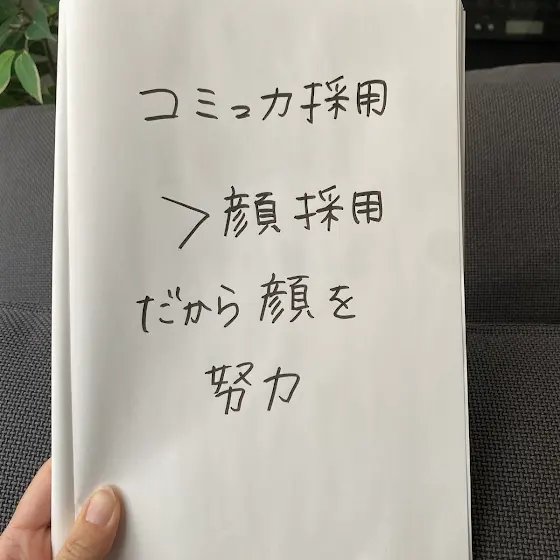 コミュ力採用
>顔採用
だから顔を
努力